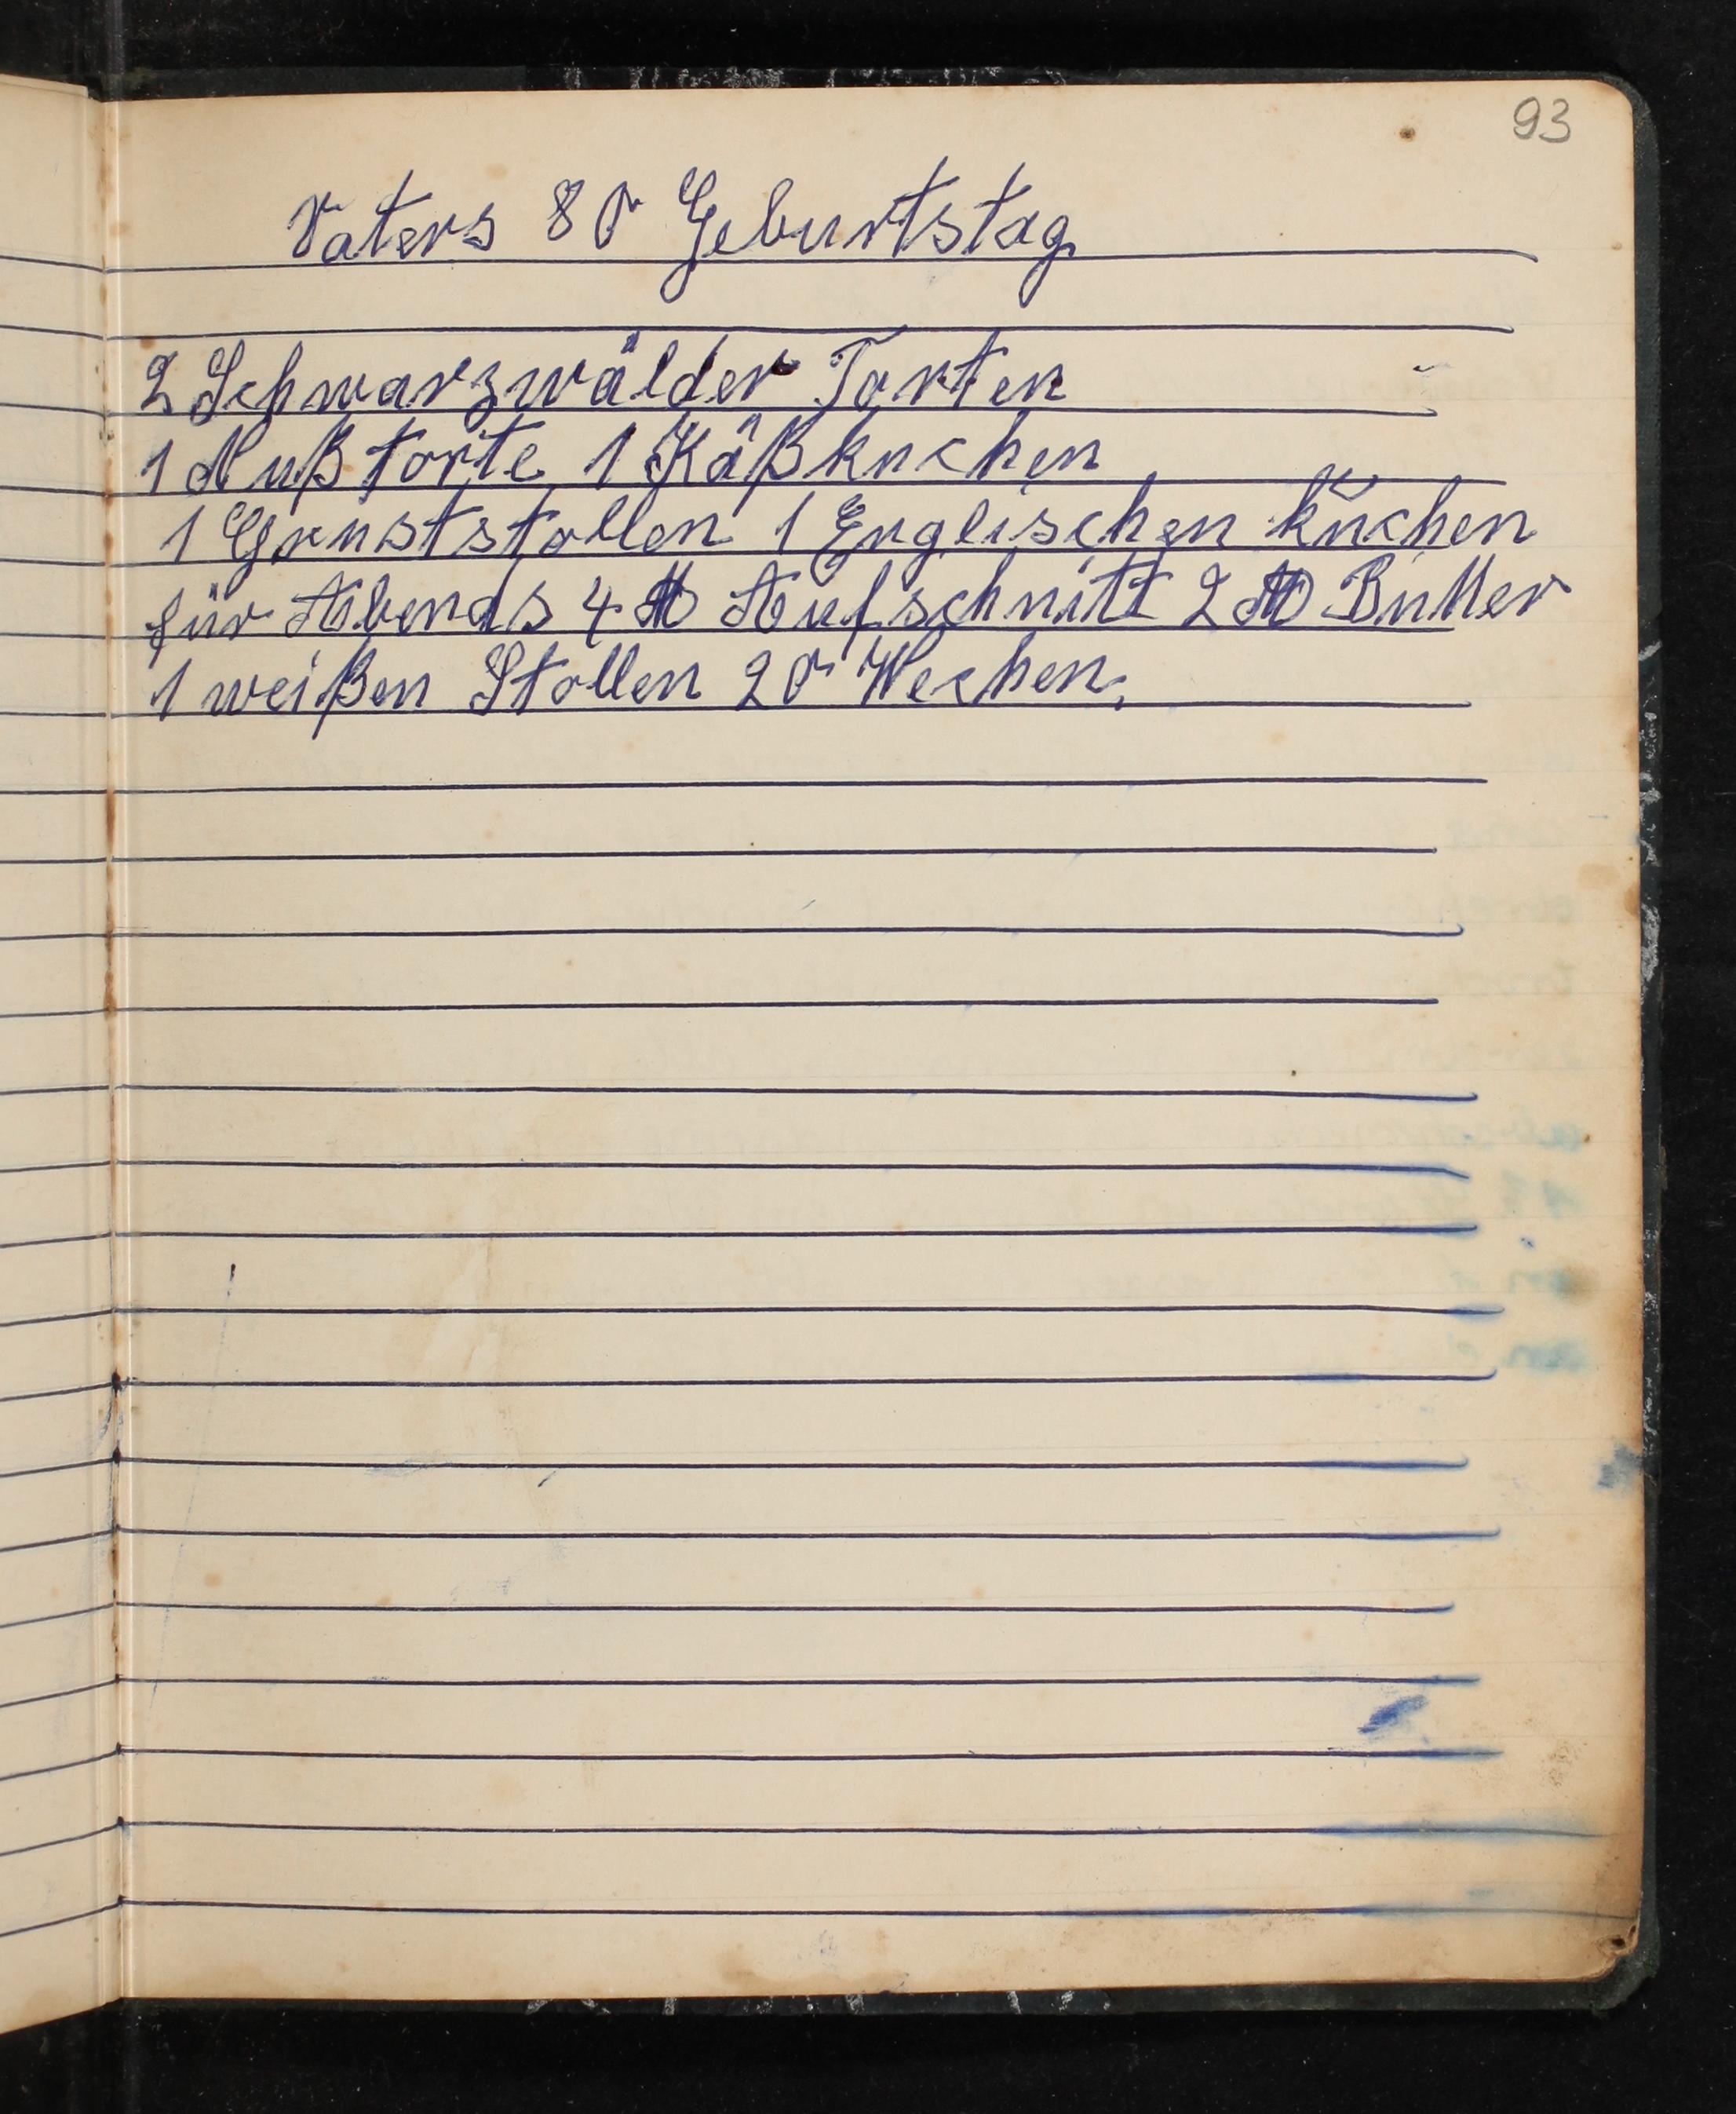 93
Vaters 80 Geburtstag
2 Schwarzwälder Torten
1 Nußtorte 1 Käßkuchen
1 Grußtstollen 1 Englischen kuchen
für Abends 4 ℔ Aufschnitt 2 ℔ Butter
1 weißen Stollen 20 Wecken,